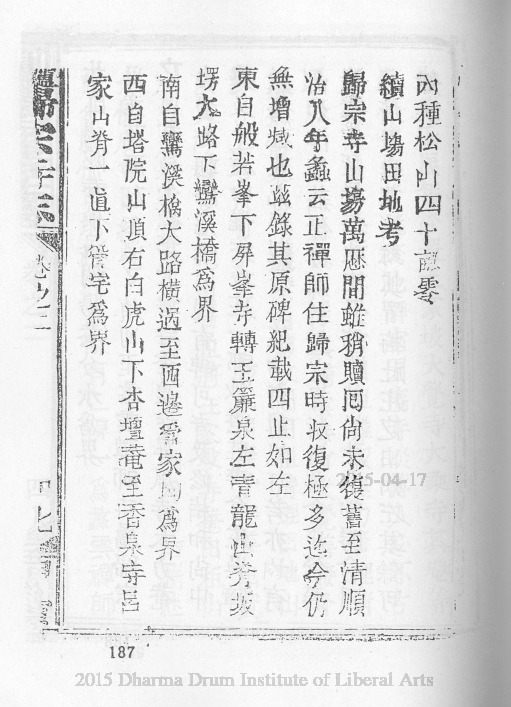 內種松山四十餘零
續山場田地考
歸宗寺山場萬厯間雖稍贖囘尚未復舊至清順
治八年蠡云正禪師住歸宗時収復極多迄今仍
無增減也茲錄其原碑紀載四止如左
東自般若峯下屏峯寺轉玉簾泉左青龍山脊坂
塝大路下鸞溪橋爲界
南自鸞溪橋大路橫過至西邊
家
爲界
西自塔院山頂右白虎山下杏壇菴至香泉寺
家山脊一直下
宅爲界
歸宗寺志
卷之三
187
2015-04-17
2015 Dharma Drum Institute of Liberal Arts